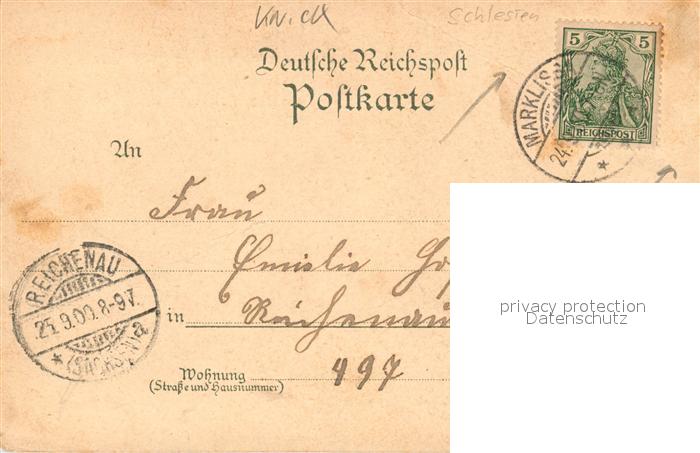 Knick Schlesien
Deutsche Reichspost
Postkarte
5 5
REICHSPOST
MARKLIS
24.
An
Frau
Emilie
in Reichenau
Wohnung 497
(Straße und Hausnummer)
REICHENAU
25.9.00.8-9V.
* (SACHSEN) a
privacy protection
Datenschutz